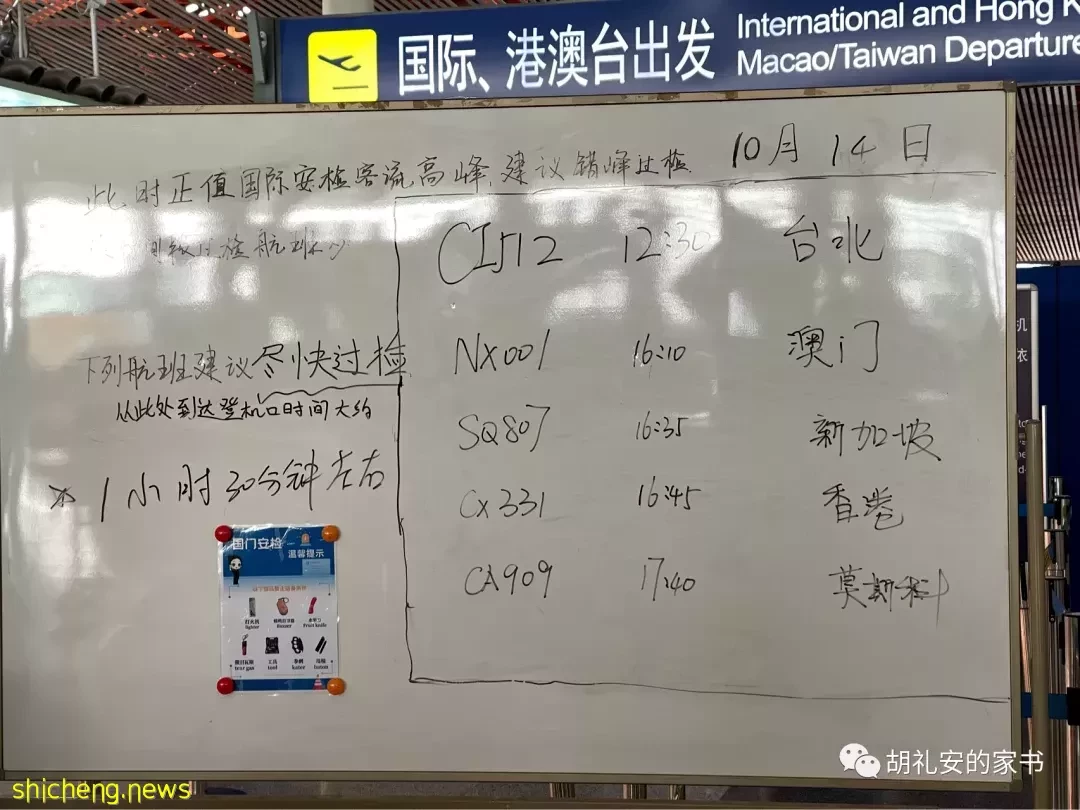 国际、港澳台出发
International and Hong K
Macao/Taiwan Departure
10月 14 日
此时正值国际安检客流高峰,建议错峰过检
CI512 12:30 台北
下列航班建议尽快过检
从此处到达登机口时间大约
* 1小时30分钟左右
NX001 16:10 澳门
SQ807 16:35 新加坡
CX331 16:45 香港
CA909 17:40 莫斯科
国门安检
温馨提示
打火机
lighter
水果刀
Fruit knife
tear gas
工具
tool
baton
胡礼安的家书
shicheng.news